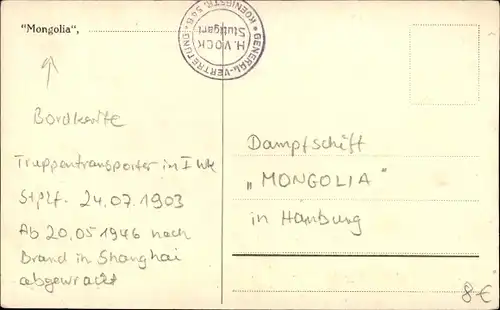 "Mongolia",
GENERAL-VERTRETUNG
H. VOCK
Stuttgart
KOENIGSTR. 54B
Bordkarte
Truppentransporter im I Wk
Stplf. 24.07.1903
Ab 20.05 1946 nach
Brand in Shanghai
abgewrackt
Dampfschiff
"MONGOLIA"
in Hamburg
8€